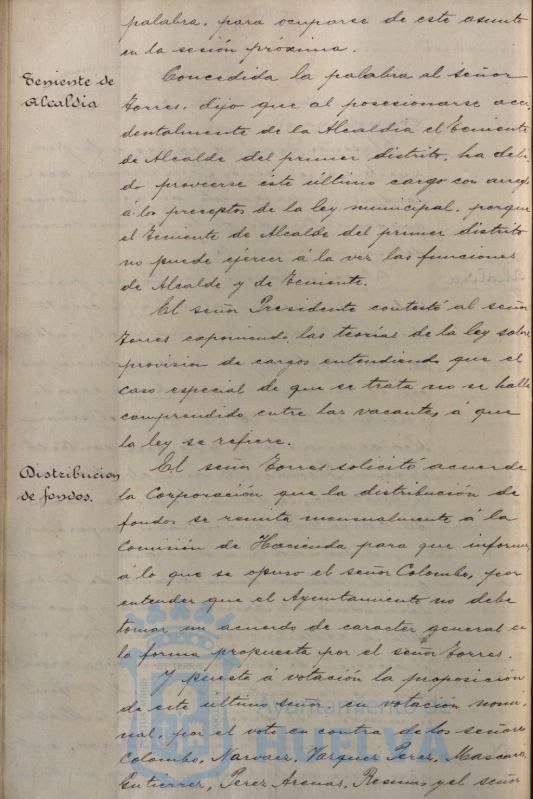 palabra, para ocuparse de este asunto
en la sesión próxima.
Teniente de
Alcaldía
Concedida la palabra al señor
Torres, dijo que al posesionarse acci
dentalmente de la Alcaldia el Teniente
de Alcalde del primer distrito, ha debi
do proveerse este último cargo con arreglo
á los preceptos de la ley municipal, porque
el Teniente de Alcalde del primer distrito
no puede ejercer á la vez las funciones
de Alcalde y de Teniente.
El señor Presidente contestó al señor
Torres exponiendo las teorías de la ley sobre
provision de cargos entendiendo que el
caso especial de que se trata no se halla
comprendido entre las vacantes á que
la ley se refiere.
Distribucion
de fondos.
El señor Torres solicitó acuerde
la Corporación que la distribución de
fondos se remita mensualmente á la
Comisión de Hacienda para que informe,
á lo que se opuso el señor Colombo, por
entender que el Ayuntamiento no debe
tomar un acuerdo de caracter general en
la forma propuesta por el señor Torres.
Y puesta á votación la proposición
de este último señor, en votación nomi-
nal, por el voto en contra de los señores
Colombo, Narvaez, Vazquez Perez, Mascarós,
Gutierrez, Perez Arenas, y el señor
Ayuntamiento de
HUELVA